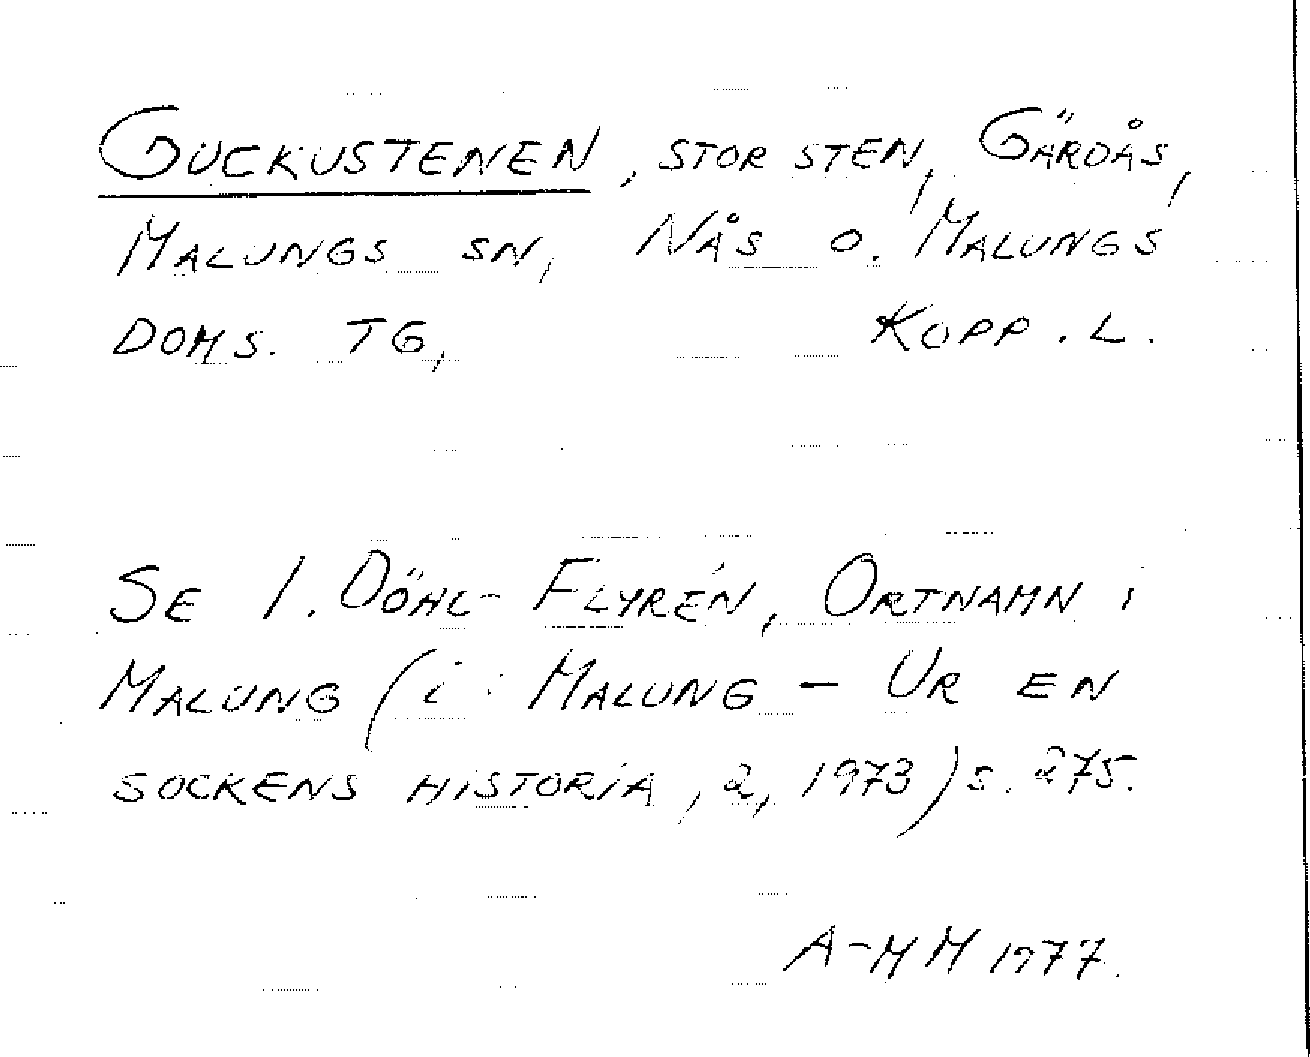 GUCKUSTENEN, STOR STEN, GÄRDÅS,
MALUNGS SN, NÅS O. MALUNGS
DOMS. TG, KOPP. L.
SE I. DÖHL-FLYRÉN, ORTNAMN i
MALUNG (i: MALUNG - UR EN
SOCKENS HISTORIA, 2, 1973) S. 275.
A-MM 1977.